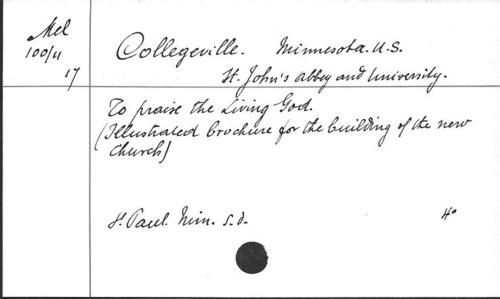 Mel
100/u
17
Collegeville. Minnesota. U.S.
St. John's abbey and University.
To praise the Living God.
(Illustrated brochure for the building of the new
church)
St. Paul. Min. s.d.
4°